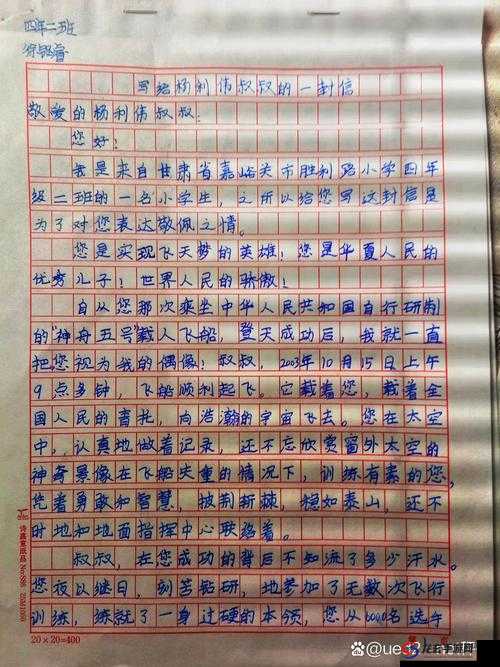 四年二班
写给杨利伟叔叔的一封信
敬爱的杨利伟叔叔:
您好!
我是来自甘肃省嘉峪关市胜利路小学四年
级二班的一名小学生,之所以给您写这封信是
为了对您表达敬佩之情。
您是实现飞天梦的英雄!您是华夏人民的
优秀儿子!世界人民的骄傲!
自从您那次乘坐中华人民共和国自行研制
的“神舟五号”载人飞船,登天成功后,我就一直
把您视为我的偶像!叔叔,2003年10月15日上午
9点多钟,飞船顺利起飞。它载着您,载着全
国人民的寄托,向浩瀚的宇宙飞去。您在太空
中,认真地做着记录,还不忘欣赏窗外太空的
神奇景像在飞船失重的情况下,训练有素的您,
凭着勇敢和智慧,披荆斩棘,稳如泰山,还不
时地和地面指挥中心联络着。
叔叔,在您成功的背后不知流了多少汗水。
您夜以继日,刻苦钻研,地参加了无数次飞行
训练,练就了一身过硬的本领,您从6000名选午
20×20=400